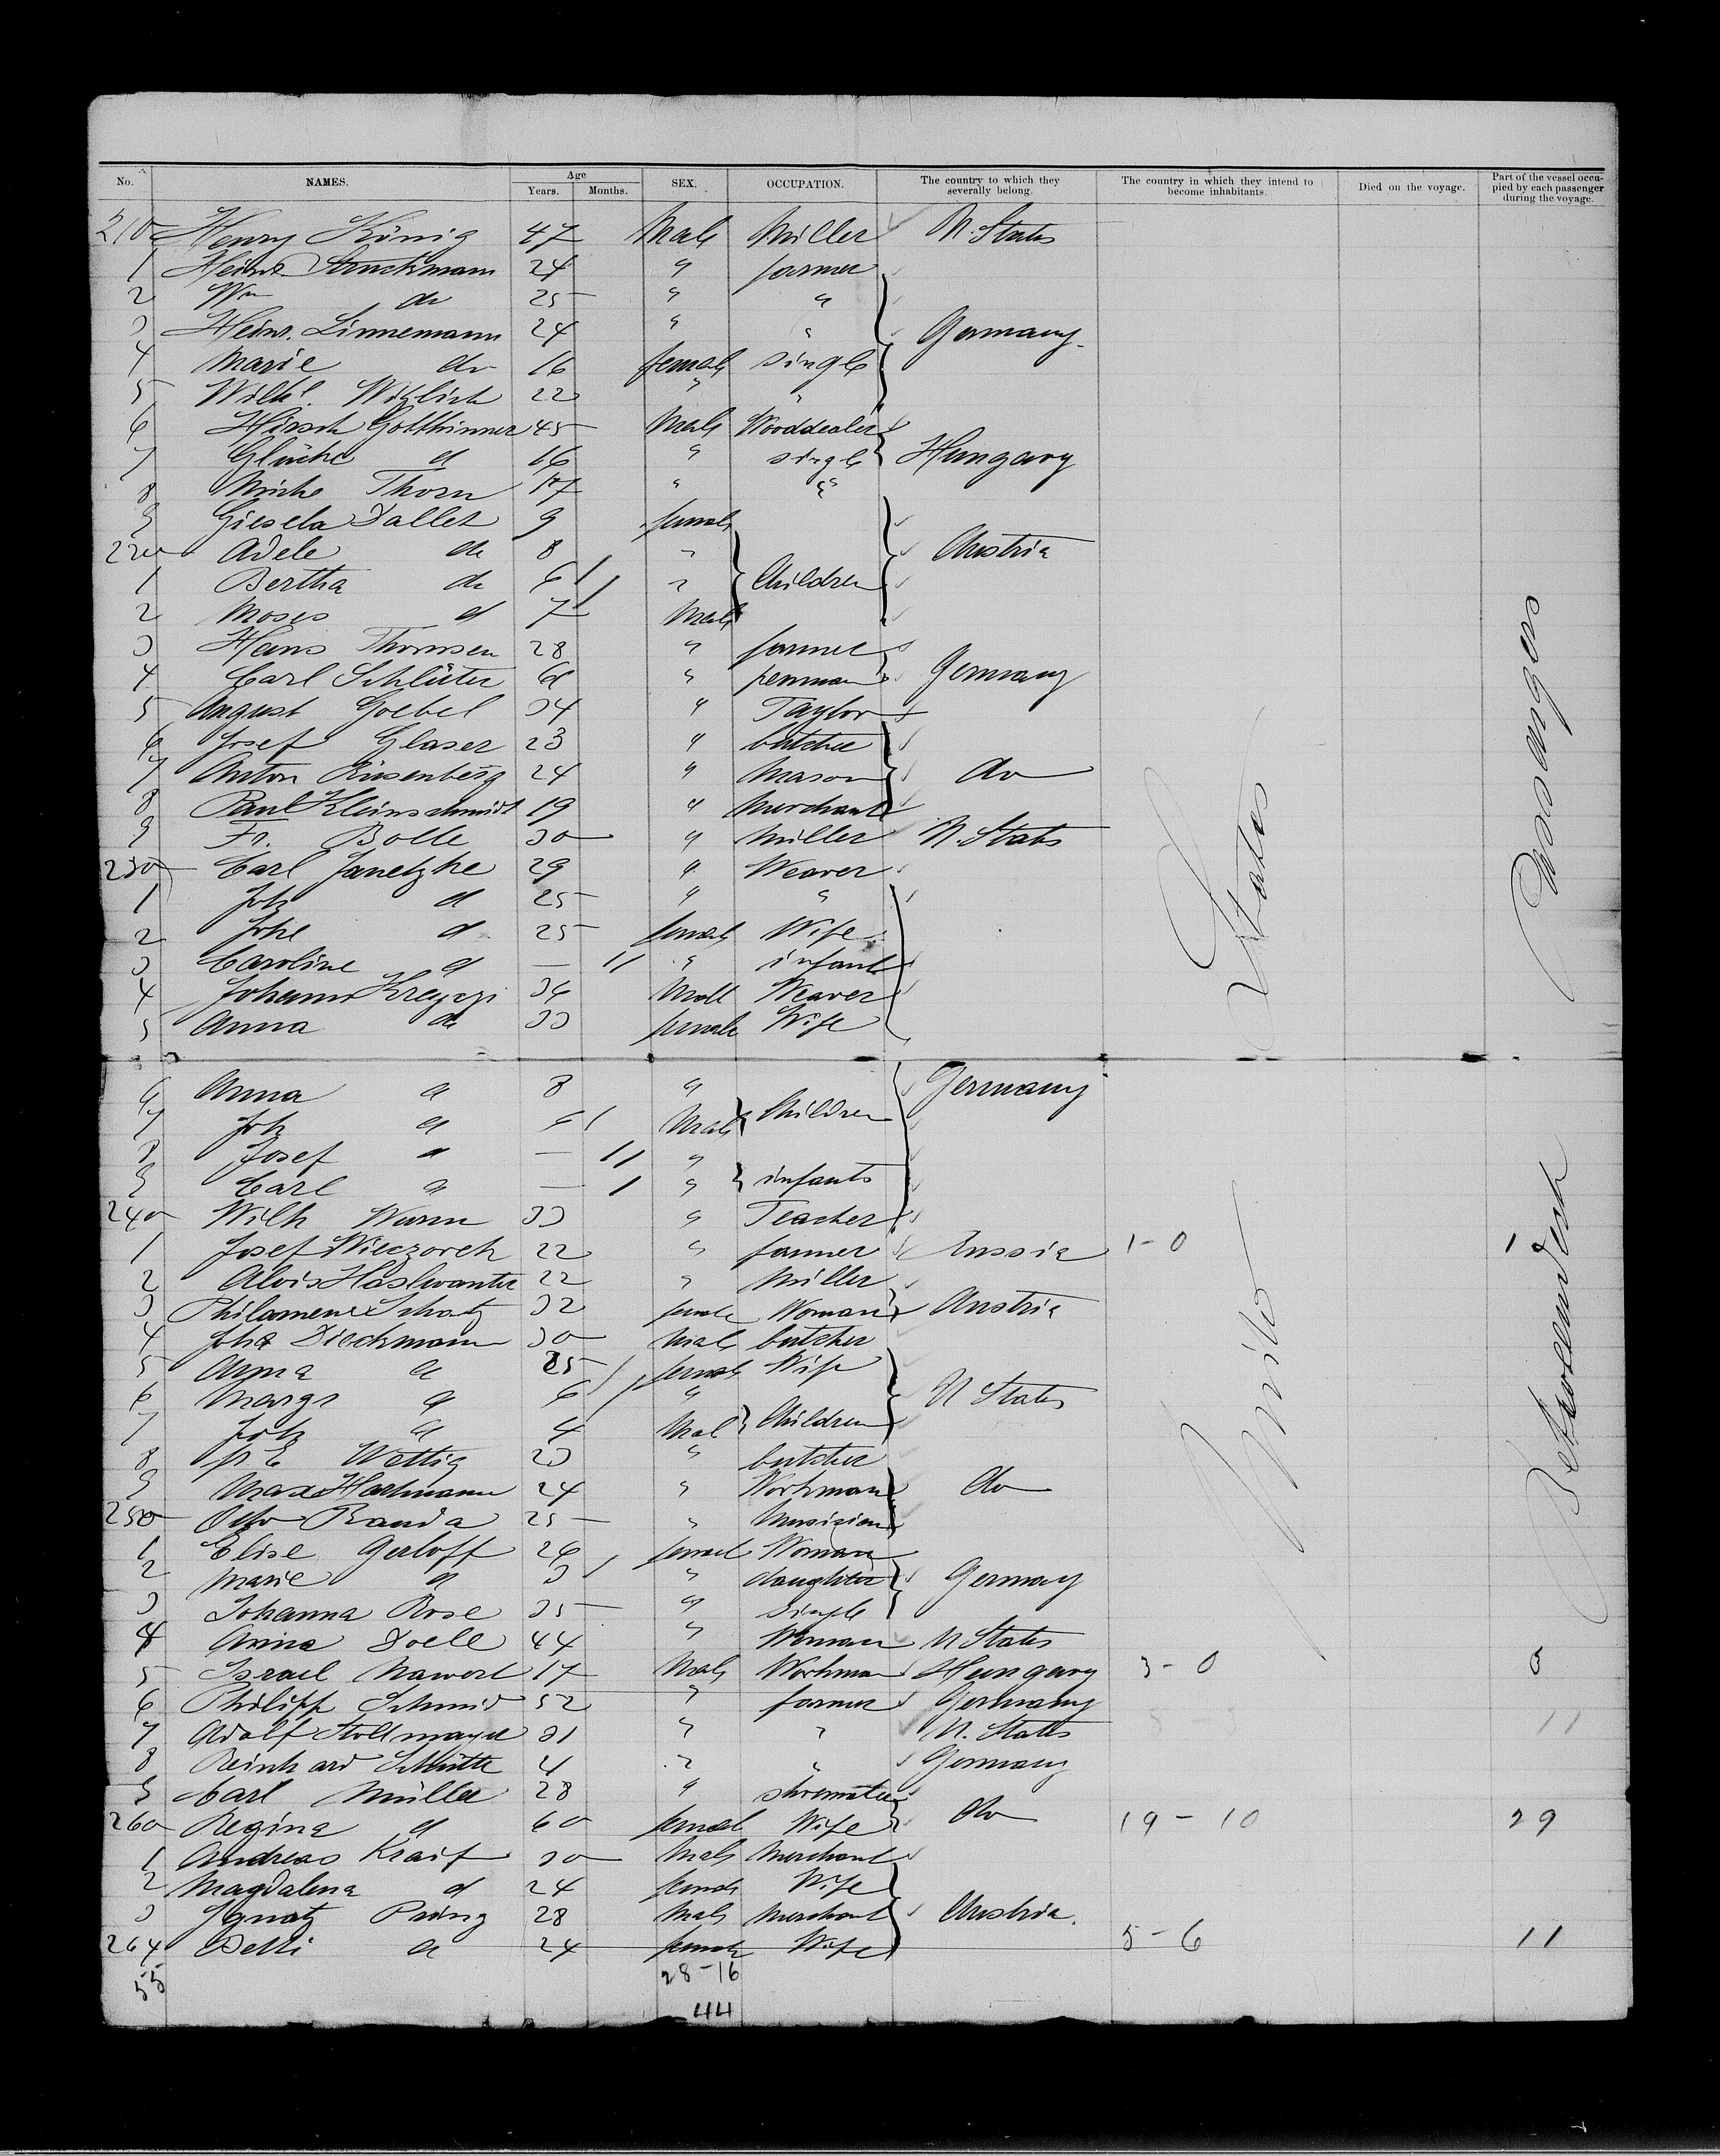 No. NAMES. Age Years. Months. SEX. OCCUPATION. The country to which they severally belong. The country in which they intend to become inhabitants. Died on the voyage. Part of the vessel occupied by each passenger during the voyage.
210 Henry König 47 Male Miller U. States
1 Heinr. Struckmann 24 " farmer
2 Wm do 25 " "
3 Heinr. Linnemann 24 " " Germany
4 Marie do 16 female single
5 Wilh. 22 " "
6 Hirsch 45 Male Wooddealer
7 d 16 " single Hungary
8 Thorn 17 " "
9 Giesela Dallet 9 female
220 Adele do 8 " Austria
1 Bertha do 6 " Children
2 Moses d 7 Male
3 Hans Thomsen 28 " farmer
4 Carl Schlüter " penman Germany
5 August Goebel 34 " Taylor
6 Josef Glaser 23 " butcher
7 Anton 24 " Mason do
8 Paul Kleinschmidt 19 " Merchant
9 Fr. Bolle 30 " Miller U. States
230 Carl Janetzke 29 " Weaver
1 Joh d 25 " "
2 Johe d 25 female Wife
3 Caroline d — 11 " infant
4 Johann 36 Male Weaver
5 Anna do 33 female Wife
6 Anna d 8 " Germany
7 Joh d 6 Male Children
8 Josef d — 11 "
9 Carl d — 1 " infants
240 Wilh Wurm 33 " Teacher
1 Josef Wieczorek 22 " farmer Russia 1-0 1
2 Alois Haslwanter 22 " Miller
3 Philomene Schatz 32 female Woman Austria
4 Joh Dieckmann 30 Male butcher
5 Anna d 25 female Wife
6 Margr d 6 " U States
7 Joh d 4 Male Children
8 Wettig 23 " butcher
9 Max Hartmann 24 " Workman do
250 Otto Banda 25 " Musician
1 Elise Gerloff 26 female Woman
2 Marie d 3 " daughter Germany
3 Johanna Rose 35 " single
4 Anna Doell 44 " Woman U States
5 Israel 17 Male Workman Hungary 3-0 3
6 Philipp Schmid 52 " farmer Germany
7 Adolf Stollmayer 31 " " U. States 11
8 Reinhard Schütte " " Germany
9 Carl Müller 28 "
260 Regina d 60 female Wife do 19-10 29
1 Andreas Kraif 30 Male Merchant
2 Magdalena d 24 female Wife
3 Ignatz Prinz 28 Male Merchant Austria.
264 Betti d 24 female Wife 5-6 11
55 28-16
44
United States
Betweendeck Passangers